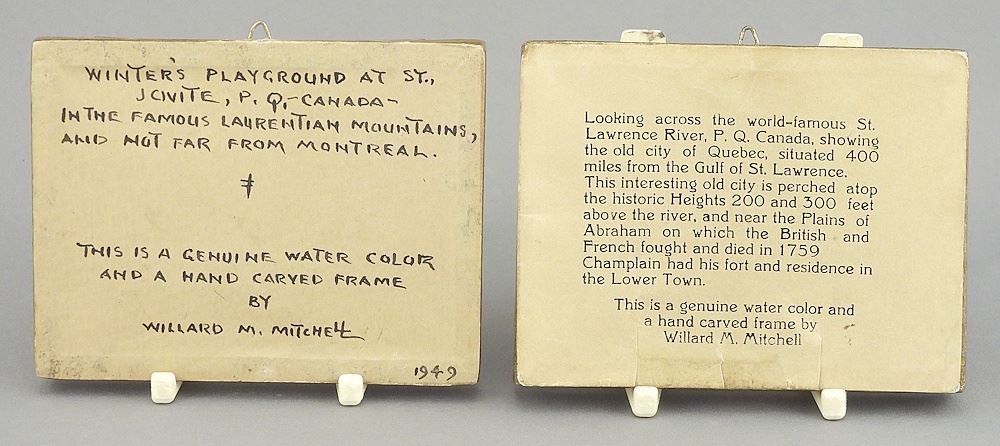 WINTER'S PLAYGROUND AT ST.,
JOVITE, P. Q,-CANADA-
IN THE FAMOUS LAURENTIAN MOUNTAINS,
AND NOT FAR FROM MONTREAL.
THIS IS A GENUINE WATER COLOR
AND A HAND CARVED FRAME
BY
WILLARD M. MITCHELL
1949
Looking across the world-famous St.
Lawrence River, P. Q. Canada, showing
the old city of Quebec, situated 400
miles from the Gulf of St. Lawrence.
This interesting old city is perched atop
the historic Heights 200 and 300 feet
above the river, and near the Plains of
Abraham on which the British and
French fought and died in 1759
Champlain had his fort and residence in
the Lower Town.
This is a genuine water color and
a hand carved frame by
Willard M. Mitchell